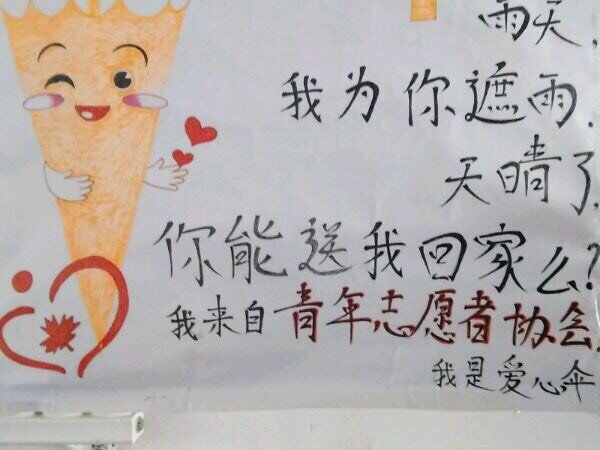 雨天,
我为你遮雨.
天晴了,
你能送我回家么?
我来自青年志愿者协会.
我是爱心伞